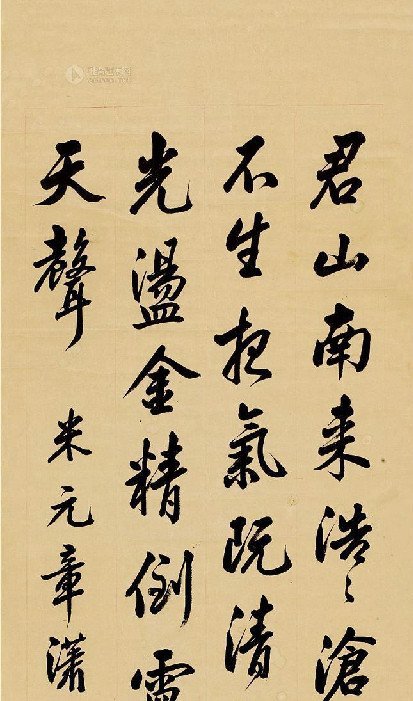 君山南来浩〻滄
不生夜氣既清
光盪金精倒
天聲
米元章瀟